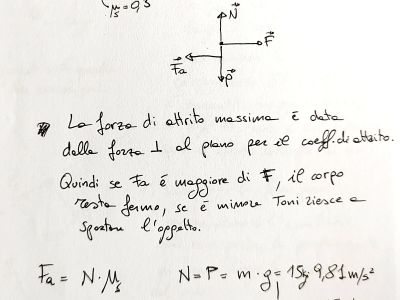 μs = 0,3
N
F
Fa
P
La forza di attrito massima è data
dalla forza ⊥ al piano per il coeff. di attrito.
Quindi se Fa è maggiore di F, il corpo
resta fermo, se è minore Toni riesce a
spostare l'oggetto.
Fa = N·μs N = P = m·g = 15kg 9,81 m/s²